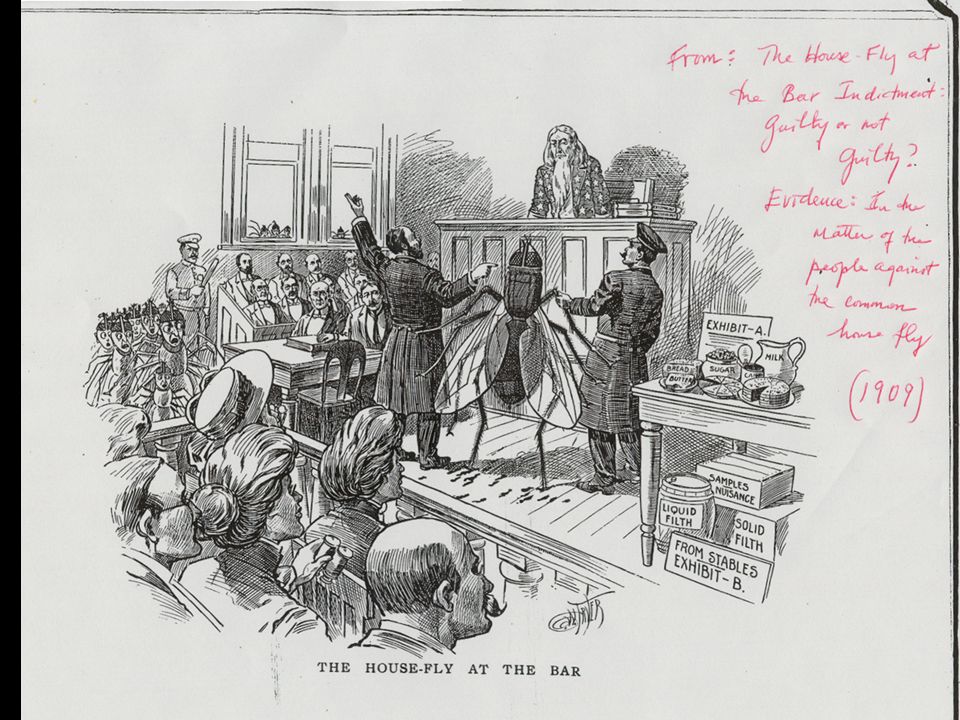 From: The House-Fly at
the Bar Indictment:
Guilty or not
Guilty?
Evidence: In the
matter of the
people against
the common
house fly
(1909)
EXHIBIT-A.
BREAD
BUTTER
SUGAR
MILK
SAMPLES
NUISANCE
LIQUID
FILTH
SOLID
FILTH
FROM STABLES
EXHIBIT-B.
THE HOUSE-FLY AT THE BAR